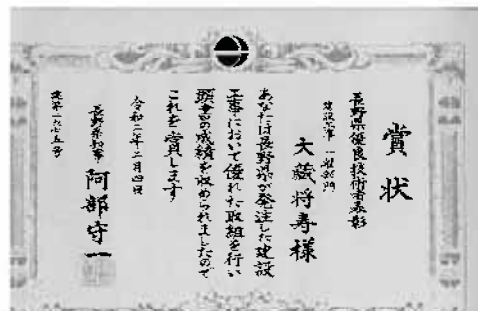 賞状
長野県優良技術者表彰
建設工事 一般部門
大蔵将寿様
あなたは長野県が発注した建設
工事において優れた取組を行い
顕著の成績を収められましたので
これを賞します
令和二年二月四日
長野県知事 阿部守一